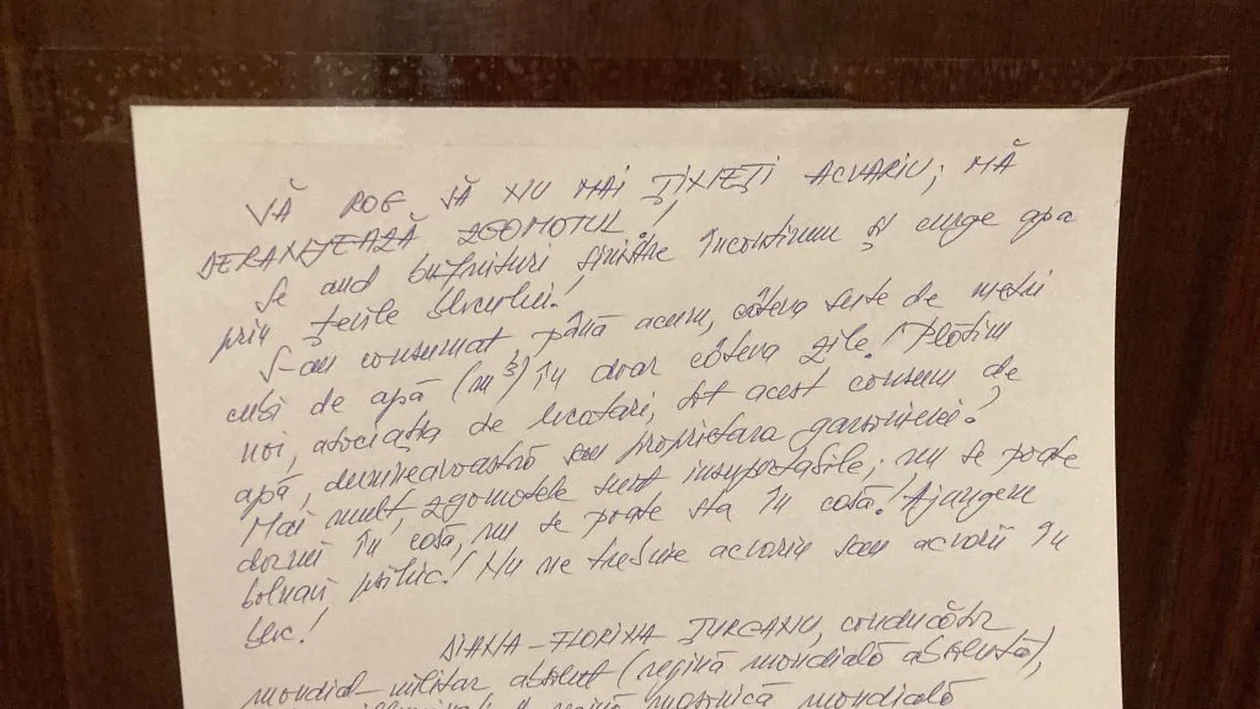 VĂ ROG SĂ NU MAI ŢINEŢI ACVARIU; MĂ
DERANJEAZĂ ZGOMOTUL!
Se aud bufnituri sinistre încontinuu şi curge apa
prin ţevile blocului!
S-au consumat până acum, câteva sute de metri
cubi de apă (m³) în doar câteva zile! Plătim
noi, asociaţia de locatari, tot acest consum de
apă, dumneavoastră sau proprietara garsonierei?
Mai mult, zgomotele sunt insuportabile; nu se poate
dormi în casă, nu se poate sta în casă! Ajungem
bolnavi psihic! Nu ne trebuie acvariu sau acvarii în
bloc!
DIANA-FLORINA ŢURCANU, conducător
mondial militar absolut (regină mondială absolută),
regină masonică mondială